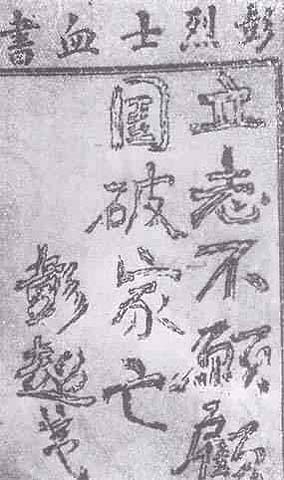 彭烈士血書
立志不願顧
国破家亡
彭超